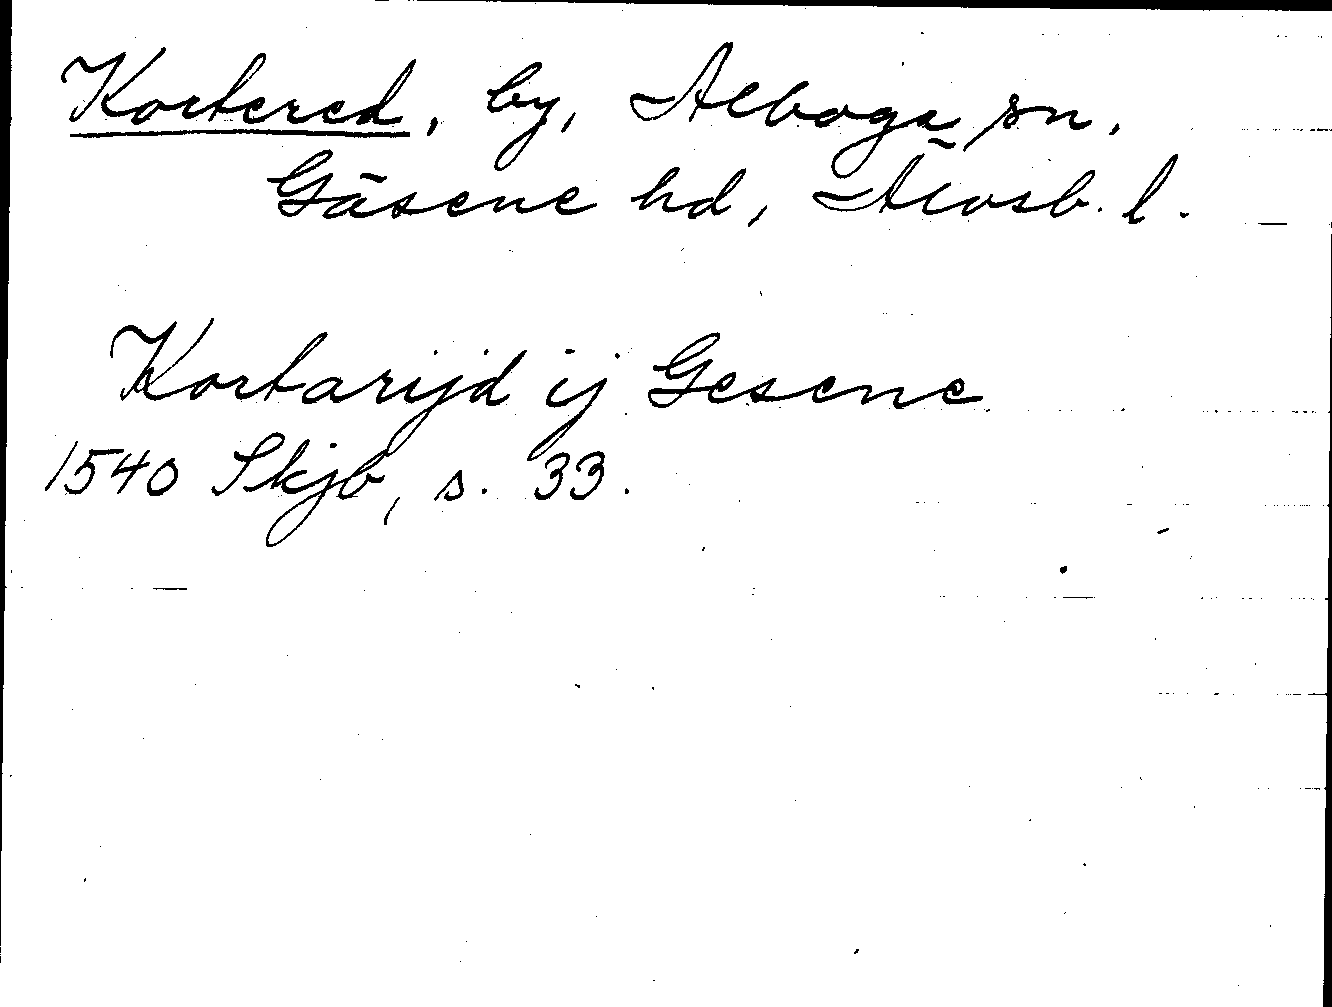 Kortered, by, Alboga sn,
Gäsene hd, Älvsb. l.
Kortarijd ij Gesene
1540 Skjb, s. 33.